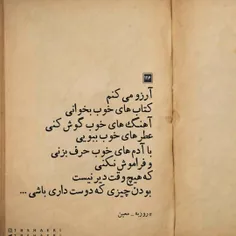 ۱۲۴
آرزو می کنم
کتاب های خوب بخوانی
آهنگ های خوب گوش کنی
عطر های خوب ببویی
با آدم های خوب حرف بزنی
و فراموش نکنی
که هیچ وقت دیر نیست
بودن چیزی که دوست داری باشی ...
روزبه _ معین